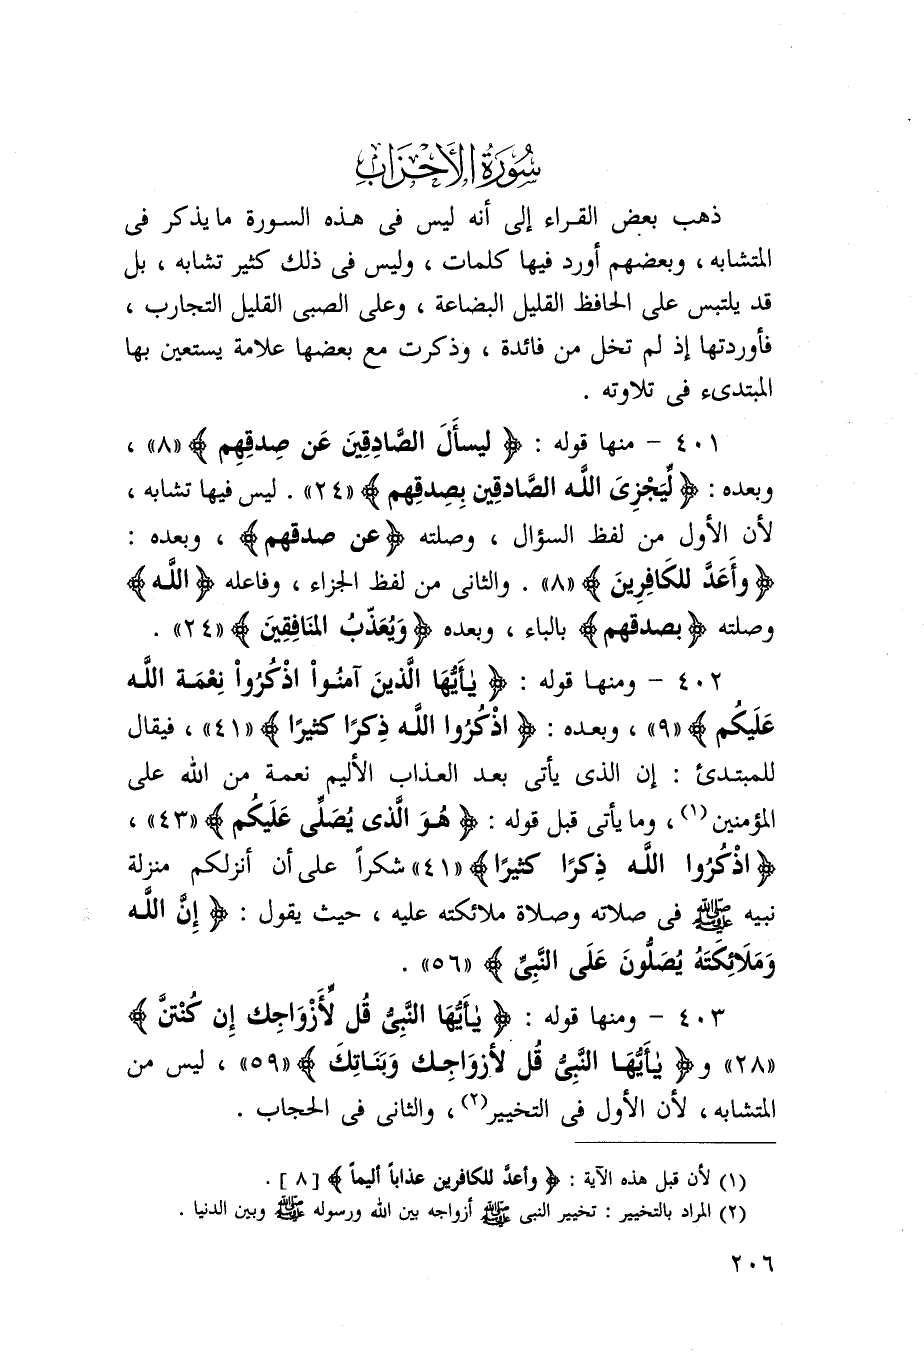 سُورَةُ الأَحْزَابِ
ذهب بعض القراء إلى أنه ليس فى هذه السورة مايذكر فى
المتشابه ، وبعضهم أورد فيها كلمات ، وليس فى ذلك كثير تشابه ، بل
قد يلتبس على الحافظ القليل البضاعة ، وعلى الصبى القليل التجارب ،
فأوردتها إذ لم تخل من فائدة ، وذكرت مع بعضها علامة يستعين بها
المبتدىء فى تلاوته .
٤٠١ - منها قوله : ﴿ ليسأَلَ الصَّادِقِينَ عَن صِدقِهِم ﴾ «٨» ،
وبعده : ﴿ لِّيَجْزِىَ اللَّه الصَّادقِين بِصِدقِهم ﴾ «٢٤» . ليس فيها تشابه ،
لأن الأول من لفظ السؤال ، وصلته ﴿عن صدقهم﴾ ، وبعده :
﴿ وأَعَدَّ للكَافِرِينَ ﴾ «٨» . والثانى من لفظ الجزاء ، وفاعله ﴿ اللَّه ﴾
وصلته ﴿ بصدقهم ﴾ بالباء ، وبعده ﴿ وَيُعَذِّبُ المنَافِقِينَ ﴾ «٢٤» .
٤٠٢ - ومنها قوله : ﴿ يٰأَيُّهَا الَّذينَ آمنُواْ اذْكُرُواْ نِعْمَة اللَّه
عَلَيكُم ﴾ «٩» ، وبعده : ﴿ اذْكُرُوا اللَّه ذِكرًا كثيرًا ﴾ «٤١» ، فيقال
للمبتدئ : إن الذى يأتى بعد العذاب الأليم نعمة من الله على
المؤمنين(١) ، ومايأتى قبل قوله : ﴿ هُوَ الَّذى يُصَلِّى عَلَيكُم ﴾ «٤٣» ،
﴿ اذْكُرُوا اللَّه ذِكرًا كثيرًا ﴾ «٤١» شكراً على أن أنزلكم منزلة
نبيه ﷺ فى صلاته وصلاة ملائكته عليه ، حيث يقول : ﴿ إنَّ اللَّه
وَمَلَائِكَتَهُ يُصَلُّونَ عَلَى النَّبِىِّ ﴾ «٥٦» .
٤٠٣ - ومنها قوله : ﴿ يٰأَيُّهَا النَّبِىُّ قُل لِّأَزْوَاجِك إِن كُنْتنَّ ﴾
«٢٨» و﴿ يٰأَيُّهَا النَّبِىُّ قُل لأزوَاجِك وَبَنَاتِكَ ﴾ «٥٩» ، ليس من
المتشابه ، لأن الأول فى التخيير(٢) ، والثانى فى الحجاب .
(١) لأن قبل هذه الآية : ﴿ وأعدَّ للكافرين عذاباً أليماً ﴾ [ ٨ ] .
(٢) المراد بالتخيير : تخيير النبى ﷺ أزواجه بين الله ورسوله ﷺ وبين الدنيا .
٢٠٦